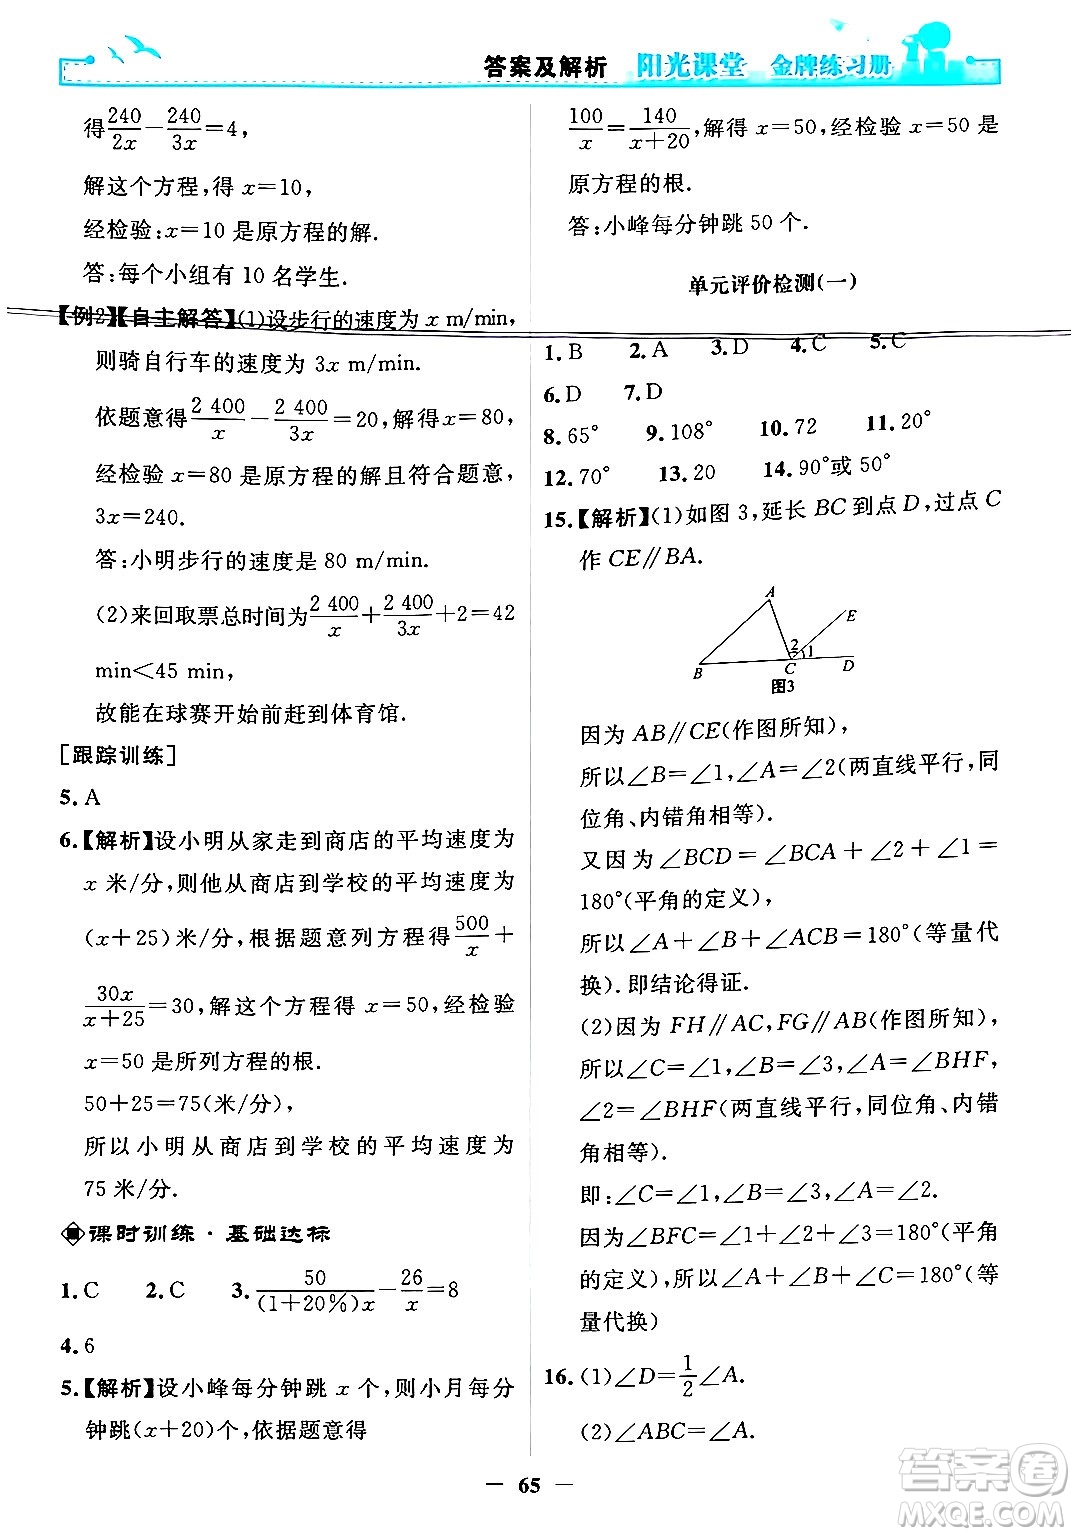 答案及解析 阳光课堂 金牌练习册
得240/2x−240/3x=4,
解这个方程,得 x=10,
经检验:x=10 是原方程的解.
答:每个小组有 10 名学生.
【例2】【自主解答】(1)设步行的速度为 x m/min,
则骑自行车的速度为 3x m/min.
依题意得2 400/x−2 400/3x=20,解得 x=80,
经检验 x=80 是原方程的解且符合题意,
3x=240.
答:小明步行的速度是 80 m/min.
(2)来回取票总时间为2 400/x+2 400/3x+2=42
min<45 min,
故能在球赛开始前赶到体育馆.
[跟踪训练]
5.A
6.【解析】设小明从家走到商店的平均速度为
x 米/分,则他从商店到学校的平均速度为
(x+25)米/分,根据题意列方程得500/x+
30x/x+25=30,解这个方程得 x=50,经检验
x=50 是所列方程的根.
50+25=75(米/分),
所以小明从商店到学校的平均速度为
75 米/分.
课时训练·基础达标
1.C 2.C 3.50/(1+20%)x−26/x=8
4.6
5.【解析】设小峰每分钟跳 x 个,则小月每分
钟跳(x+20)个,依据题意得
100/x=140/x+20,解得 x=50,经检验 x=50 是
原方程的根.
答:小峰每分钟跳 50 个.
单元评价检测(一)
1.B 2.A 3.D 4.C 5.C
6.D 7.D
8.65° 9.108° 10.72 11.20°
12.70° 13.20 14.90°或 50°
15.【解析】(1)如图 3,延长 BC 到点 D,过点 C
作 CE∥BA.
A
E
2
1
B C D
图3
因为 AB∥CE(作图所知),
所以∠B=∠1,∠A=∠2(两直线平行,同
位角、内错角相等).
又因为∠BCD=∠BCA+∠2+∠1=
180°(平角的定义),
所以∠A+∠B+∠ACB=180°(等量代
换).即结论得证.
(2)因为 FH∥AC,FG∥AB(作图所知),
所以∠C=∠1,∠B=∠3,∠A=∠BHF,
∠2=∠BHF(两直线平行,同位角、内错
角相等).
即:∠C=∠1,∠B=∠3,∠A=∠2.
因为∠BFC=∠2+∠1+∠3=180°(平角
的定义),所以∠A+∠B+∠C=180°(等
量代换)
16.(1)∠D=1/2∠A.
(2)∠ABC=∠A.
— 65 —
答案圈
MXQE.COM